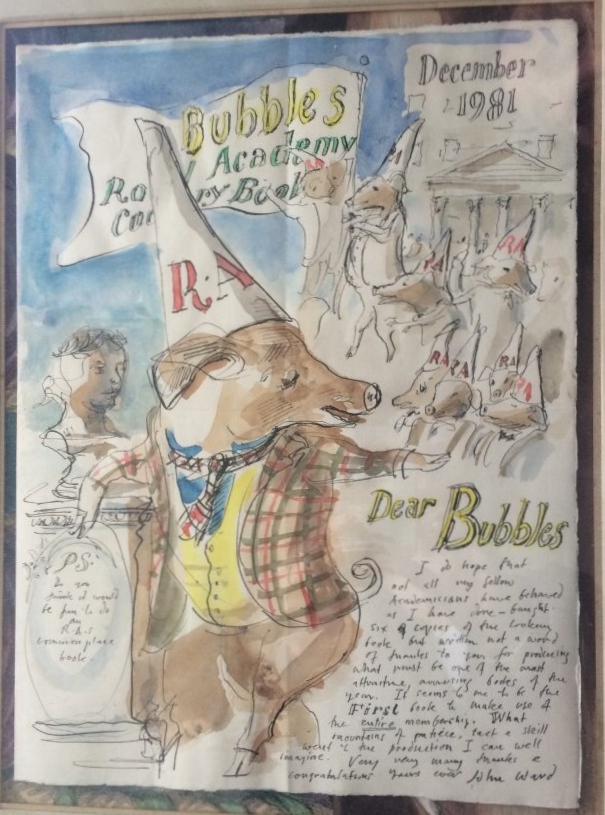 December
1981
Bubbles
Royal Academy
Cookery Book
R.A
RA
RA
RA
RA
RA
RA
Dear Bubbles
I do hope that
not all my fellow
Academicians have behaved
as I have done - bought
six copies of the cookery
book but written not a word
of thanks to you for producing
what must be one of the most
attractive, amusing books of the
year. It seems to me to be the
First book to make use of
the entire membership. What
mountains of patience, tact & skill
went to the production I can well
imagine. Very very many thanks &
congratulations yours ever John Ward
PS.
Do you
think it would
be fun to do
an
R.A.s
commonplace
book